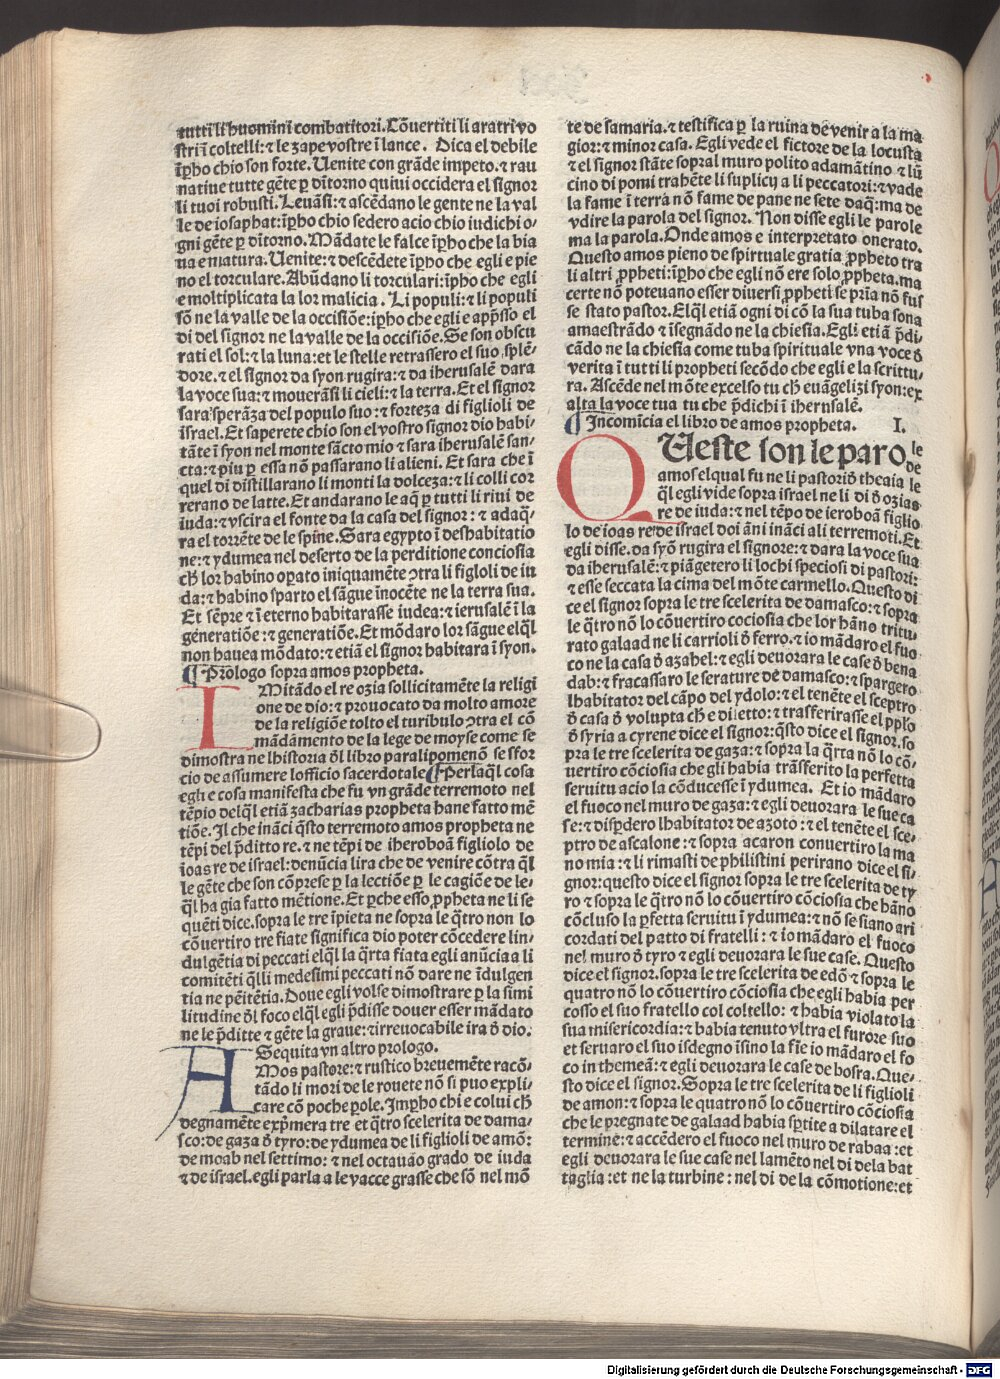 tutti li huomini combatitori. Cõuertiti li aratri vo
stri ĩ coltelli: ⁊ le zape vostre ĩ lance. Dica el debile
ĩꝑho chio son forte. Uenite con grãde impeto. ⁊ rau
natiue tutte gẽte ꝑ dĩtorno quiui occidera el signor
li tuoi robusti. Leuãsi: ⁊ ascẽdano le gente ne la val
le de iosaphat: ĩꝑho chio sedero acio chio iudichi o-
gni gẽte ꝑ dĩtorno. Mãdate le falce ĩꝑho che la bia
na e matura. Uenite: ⁊ descẽdete ĩꝑho che egli e pie
no el torculare. Abũdano li torculari: ĩpho che egli
e moltiplicata la lor malicia. Li populi: ⁊ li populi
sõ ne la valle de la occisiõe: ĩꝑho che egli e appͤsso el
di del signor ne la valle de la occisiõe. Se son obscu
rati el sol: ⁊ la luna: et le stelle retrassero el suo splẽ-
dore. ⁊ el signor da syon rugira: ⁊ da iherusalẽ dara
la voce sua: ⁊ mouerãsi li cieli: ⁊ la terra. Et el signor
sara sperãza del populo suo: ⁊ forteza di figlioli de
ĩsrael. Et saperete chio son el vostro signor dio habi-
tãte ĩ syon nel monte sãcto mio ⁊ sara iherusalẽ san-
cta: ⁊ piu ꝑ essa nõ passarano li alieni. Et sara che ĩ
quel di distillarano li monti la dolceza: ⁊ li colli cor
rerano de latte. Et andarano le aq̃ ꝑ tutti li riui de
iuda: ⁊ vscira el fonte da la casa del signor: ⁊ adaq̃-
ra el torrẽte de le spine. Sara egypto ĩ deshabitatio
ne: ⁊ ydumea nel deserto de la perditione conciosia
ch̃ lor habino oꝑato iniquamẽte ↄtra li figloli de iu
da: ⁊ habino sparto el sãgue inocẽte ne la terra sua.
Et sẽpre ⁊ ĩ eterno habitarasse iudea: ⁊ ierusalẽ ĩ la
generatiõe: ⁊ generatiõe. Et mõdaro lor sãgue elq̃l
non hauea mõdato: ⁊ etiã el signor habitara ĩ syon.
¶ Prologo sopra amos propheta.
IMitãdo el re ozia sollicitamẽte la religi
one de dio: ⁊ prouocato da molto amore
de la religiõe tolto el turibulo ↄtra el cõ
mãdãmento de la lege de moyse come se
dimostra ne lhistoria ðl libro paralipomenõ se sfor
cio de assumere lofficio sacerdotale ¶ Per laq̃l cosa
egli e cosa manifesta che fu vn grãde terremoto nel
tẽpio delq̃l etiã zacharias propheta hane fatto mẽ
tiõe. Il che inãci q̃sto terremoto amos propheta ne
tẽpi del p̃ditto re. ⁊ ne tẽpi de iheroboã figliolo de
ioas re de israel: denũcia lira che de venire cõtra q̃l
le gẽte che son cõprese ꝑ la lectiõe ꝑ le cagiõe de le-
q̃l ha gia fatto mẽtione. Et ꝑche esso ꝓpheta ne li se
quẽti dice. sopra le tre ĩpieta ne sopra le q̃tro non lo
cõuertiro tre fiate significa dio poter cõcedere lin-
dulgẽtia di peccati elq̃l la q̃rta fiata egli anũcia a li
comitẽti q̃lli medesimi peccati nõ dare ne ĩdulgen
tia ne pẽitẽtia. Doue egli volse dimostrare ꝑ la simi
litudine ðl foco elq̃l egli p̃disse douer esser mãdato
ne le p̃ditte ⁊ gẽte la graue: ⁊ irreuocabile ira ð dio.
Sequita vn altro prologo.
AMos pastore: ⁊ rustico breuemẽte racõ-
tãdo li mori de le rouete nõ si puo expli-
care cõ poche ꝑole. Imꝑho chi e colui ch̃
degnamẽte exp̃mera tre et q̃tro scelerita de dama-
sco: de gaza ð tyro: de ydumea de li figlioli de amõ:
de moab nel settimo: ⁊ nel octauão grado de iuda
⁊ de israel. egli parla a le vacce grasse che sõ nel mõ
te de samaria. ⁊ testifica ꝑ la ruina de venir a la ma
gior: ⁊ minor casa. Egli vede el fictore de la locusta
⁊ el signor stãte sopral muro polito adamãtino ⁊ lũ
cino di pomi trahẽte li suplicij a li peccatori: ⁊ vade
la fame ĩ terra nõ fame de pane ne sete daq̃: ma de
vdire la parola del signor. Non disse egli le parole
ma la parola. Onde amos e interpretato onerato.
Questo amos pieno de spirtuale gratia ꝓpheto tra
li altri ꝓpheti: ĩꝑho che egli nõ ere solo ꝓpheta. ma
certe nõ poteuano esser diuersi ꝓpheti se pria nõ fus
se stato pastor. Elq̃l etiã ogni di cõ la sua tuba sona
amaestrãdo ⁊ ĩsegnãdo ne la chiesia. Egli etiã p̃di-
cãdo ne la chiesia come tuba spirituale vna voce ð
verita ĩ tutti li propheti secõdo che egli e la scrittu-
ra. Ascẽde nel mõte excelso tu ch̃ euãgelizi syon: ex
alta la voce tua tu che p̃dichi ĩ iherusalẽ.
¶ Incomĩcia el libro de amos propheta. I.
QUeste son le paro le
de
amos elqual fu ne li pastori ð thecuia le
q̃l egli vide sopra israel ne li di ð ozias
re de iuda: ⁊ nel tẽpo de ieroboã figlio
lo de ioas re de israel doi ãni inãci ali terremoti. Et
egli disse. da syõ rugira el signore: ⁊ dara la voce sua
da iherusalẽ: ⁊ piãgetero li lochi speciosi di pastori:
⁊ esse seccata la cima del mõte carmello. Questo di
ce el signor sopra le tre scelerita de damasco: ⁊ sopra
le q̃tro nõ lo cõuertiro cociosia che lor hãno tritu
rato galaad ne li carrioli ð ferro. ⁊ io mãdaro el fuo
co ne la casa ð azahel: ⁊ egli deuorara le case ð bena
dab: ⁊ fracassaro le serature de damasco: ⁊ spargero
lhabitator del cãpo del ydolo: ⁊ el tenẽte el sceptro
ð casa ð volupta ch̃ e diletto: ⁊ trasferirasse el pp̃lo
ð syria a cyrene dice el signor: q̃sto dice el signor. so
pra le tre scelerita de gaza: ⁊ sopra la q̃rta nõ lo cõ-
uertiro cõciosia che gli habia trãsferito la perfetta
seruitu acio la cõducesse ĩ ydumea. Et io mãdaro
el fuoco nel muro de gaza: ⁊ egli deuorara le sue ca
se: ⁊ disꝑdero lhabitator de azoto: ⁊ el tenẽte el sce-
ptro de ascalone: ⁊ sopra acaron conuertiro la ma
no mia: ⁊ li rimasti de philistini perirano dice el si-
gnor: questo dice el signor sopra le tre scelerita de ty
ro ⁊ sopra le q̃tro nõ lo cõuertiro cõciosia che hãno
cõcluso la ꝑfetta seruitu ĩ ydumea: ⁊ nõ se siano ari
cordati del patto di fratelli: ⁊ io mãdaro el fuoco
nel muro ð tyro ⁊ egli deuorara le sue case. Questo
dice el signor. sopra le tre scelerita de edõ ⁊ sopra le
quatro nõ lo cõuertiro cõciosia che egli habia per
cosso el suo fratello col coltello: ⁊ habia violato la
sua misericordia: ⁊ habia tenuto vltra el furore suo
et seruaro el suo isdegno ĩsino la fĩe io mãdaro el fo
co in themeã: ⁊ egli deuorara le case de bosra. Que-
sto dice el signor. Sopra le tre scelerita de li figlioli
de amon: ⁊ sopra le quatro nõ lo cõuertiro cõciosia
che le pregnate de galaad habia sꝑtite a dilatare el
termine: ⁊ accẽdero el fuoco nel muro de rabaa: et
egli deuorara le sue case nel lamẽto nel di de la bat
taglia: et ne la turbine: nel di de la cõmotione: et
Digitalisierung gefördert durch die Deutsche Forschungsgemeinschaft - DFG